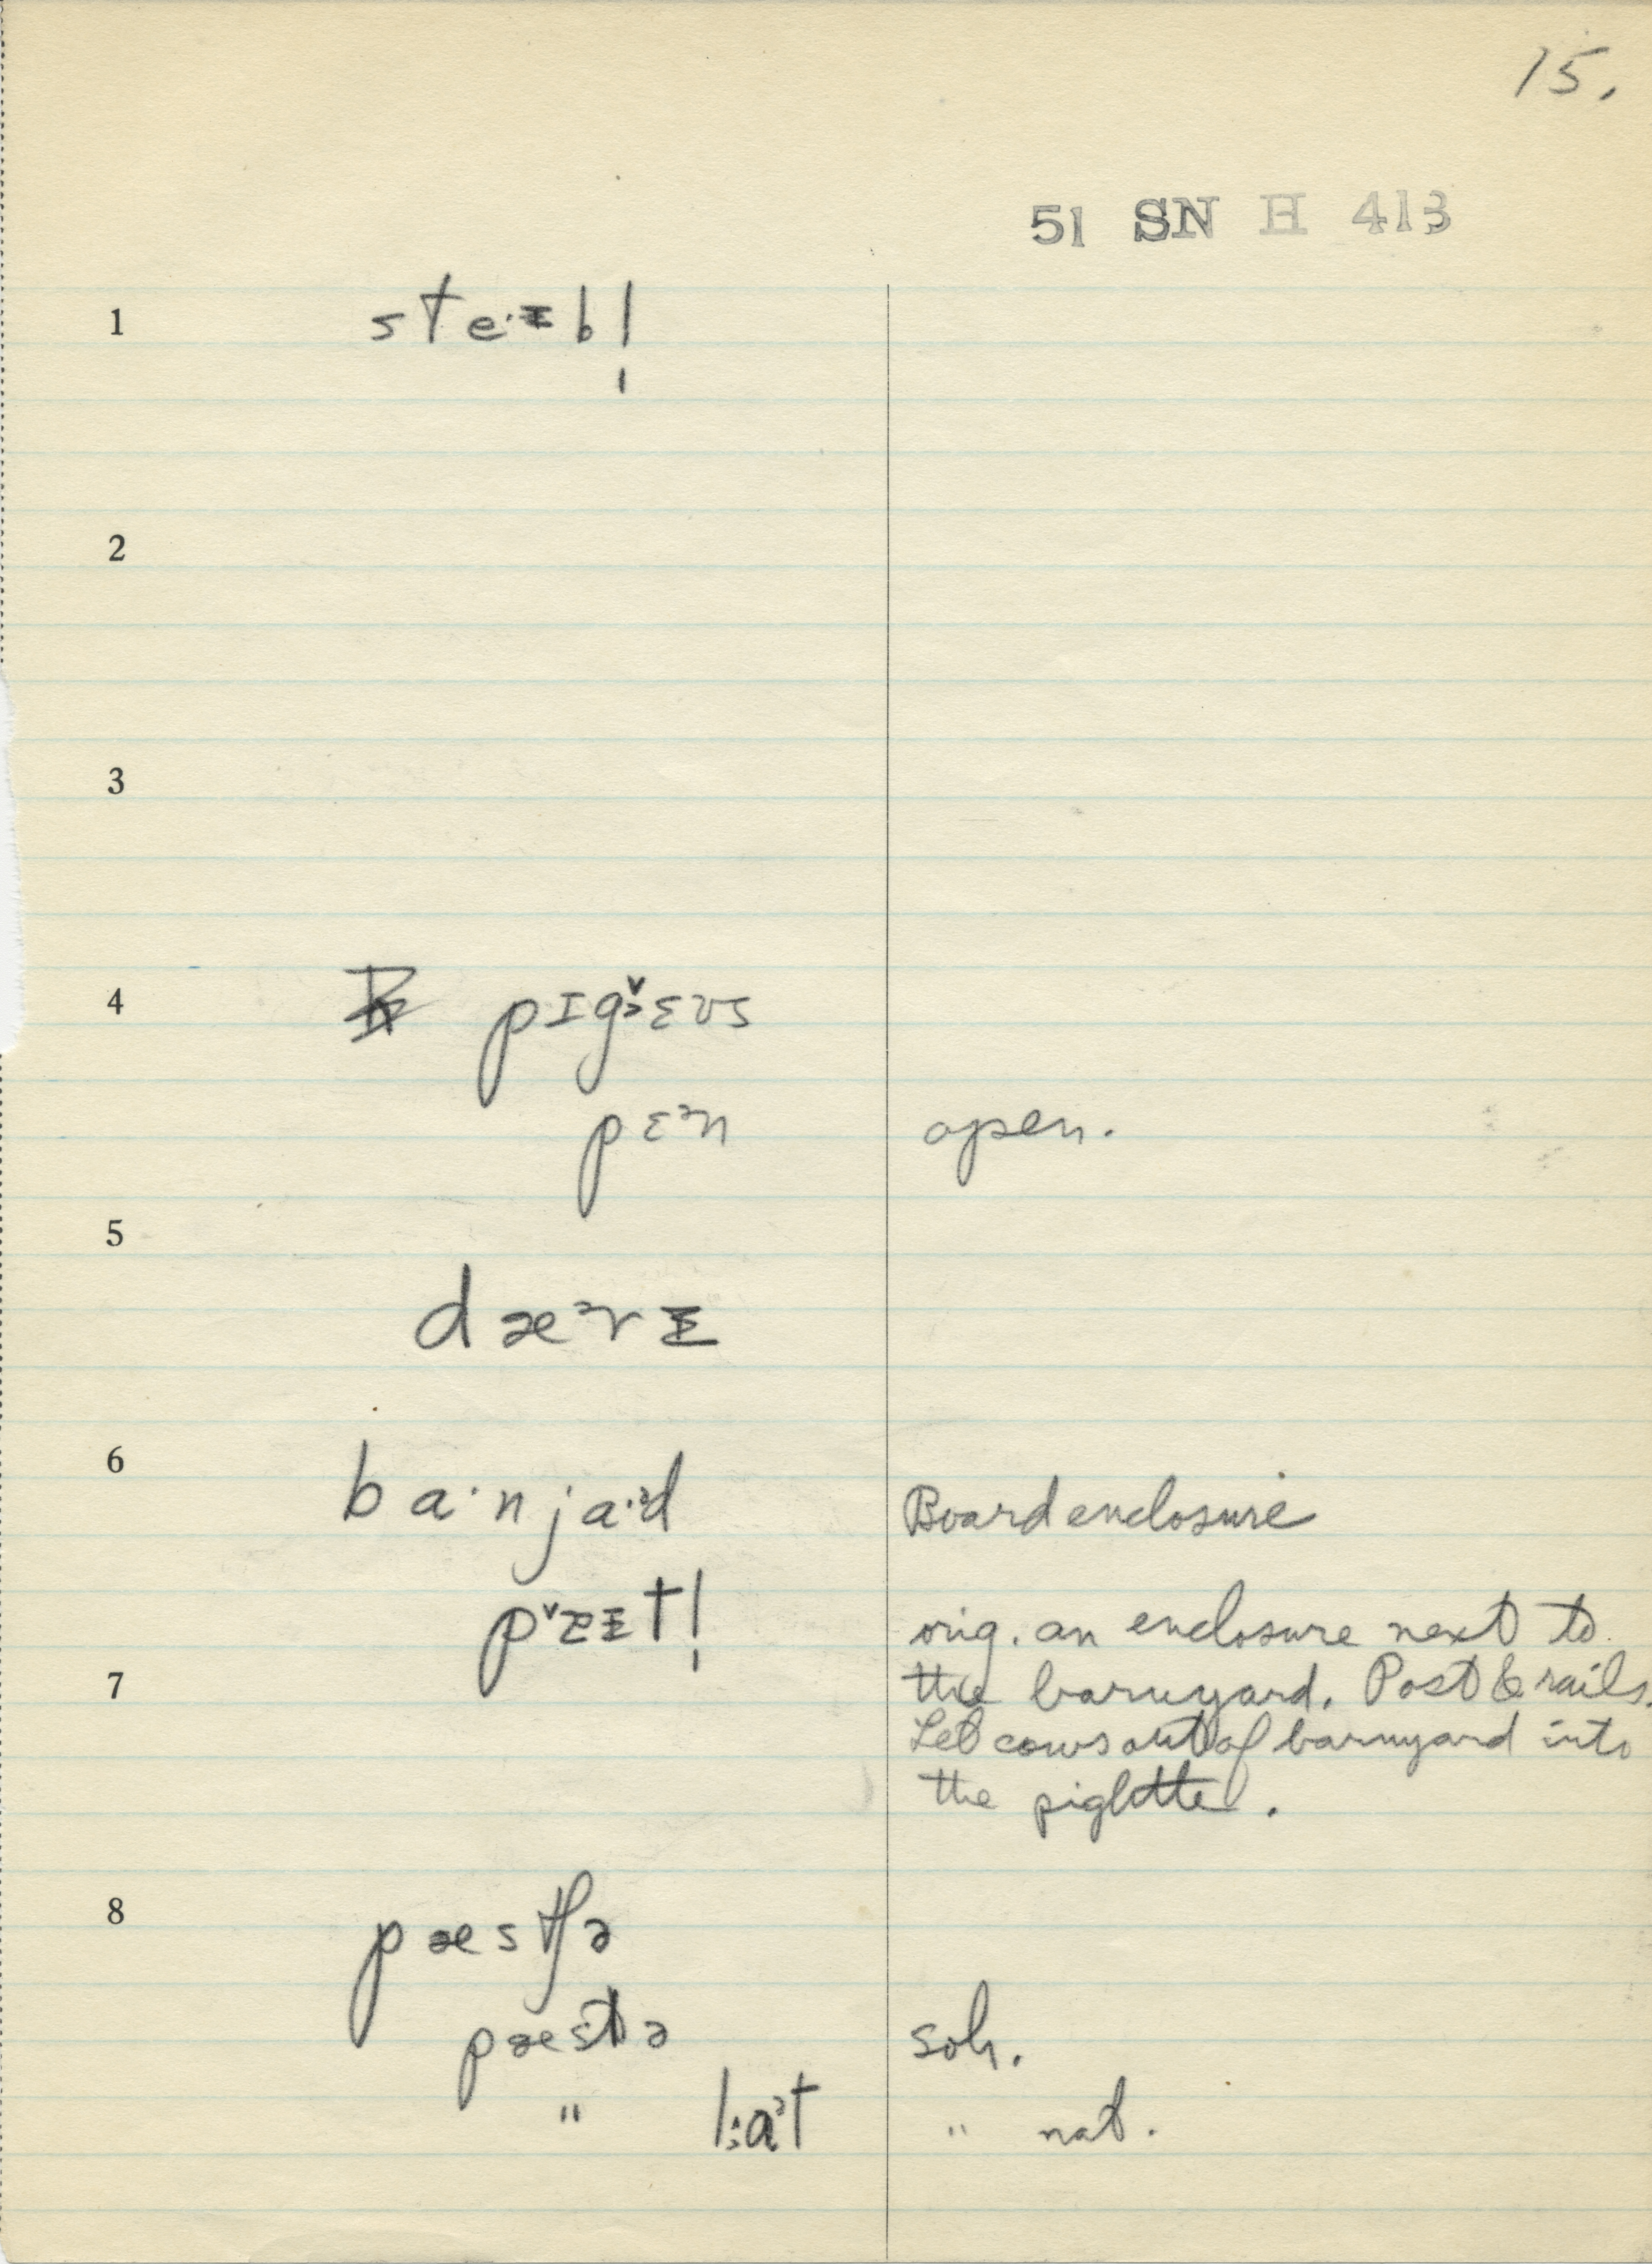 15.
51 SN H 413
1 ste·ɪ̵bl̩
2
3
4 pɪgɜ̌ɛʊs
pɛᵊn open.
5 dæᵊrɪ̵
6 ba·nja·ᵊd Board enclosure
orig. an enclosure next to
7 the barnyard. Post & rails.
Let cows out of barnyard into
the piglotte.
8 pæstʃə
pæstə soh.
" " nat.